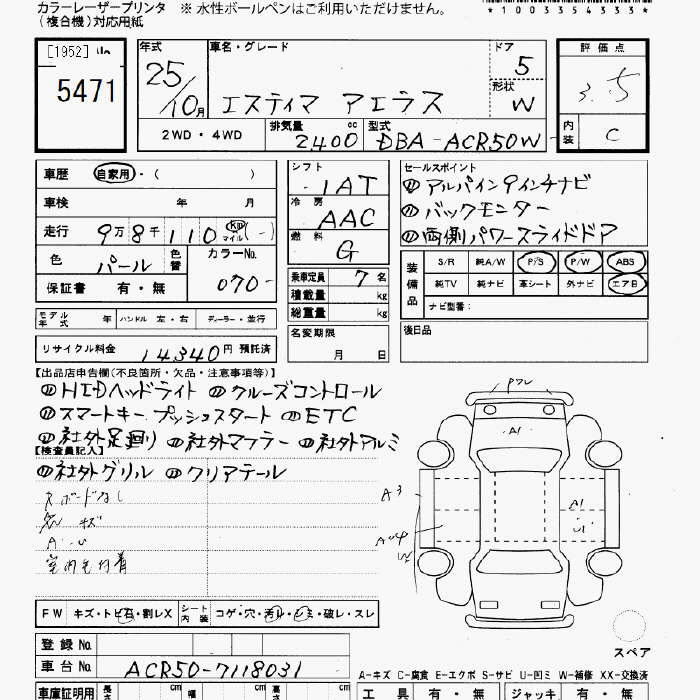 カラーレーザープリンタ ※ 水性ボールペンはご利用いただけません。
(複合機)対応用紙
*1003354333*
[1952] 5471
年式 25/10月
車名・グレード エスティマ アエラス
ドア 5
形状 W
評価点 3.5
内装 C
2WD・4WD 排気量 2400 cc 型式 DBA-ACR50W
車歴 自家用・( )
車検 年 月
走行 9万8千110 Km マイル (-)
色 パール 色替 カラーNo. 070-
保証書 有・無
シフト IAT
冷房 AAC
燃料 G
乗車定員 7名
積載量 kg
総重量 kg
セールスポイント
アルパイン9インチナビ
バックモニター
両側パワースライドドア
装備品 S/R 純A/W P/S P/W ABS
純TV 純ナビ 革シート 外ナビ エアB
ナビ型番:
モデル年式 年 ハンドル 左・右 ディーラー・並行
名変期限 月 日
後日品
リサイクル料金 14340円 預託済
【出品店申告欄(不良箇所・欠品・注意事項等)】
HIDヘッドライト クルーズコントロール
スマートキー プッシュスタート ETC
社外足廻り 社外マフラー 社外アルミ
【検査員記入】
社外グリル クリアテール
スボードなし
キズ
室内毛付着
A1
A3
A1
U1
W
FW キズ・トビ石・割レX シート内装 コゲ・穴・汚ル・シミ・破レ・スレ
スペア
登録 No.
車台 No. ACR50-7118031
A-キズ C-腐食 E-エクボ S-サビ U-凹ミ W-補修 XX-交換済
車庫証明用 長さ cm 幅 cm 高さ cm
工具 有・無 ジャッキ 有・無